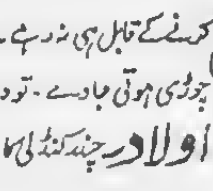 کرنے کے قابل ہی نہ رہے ۔
چوڑی ہوتی جاوے ۔ تو د
اولاد ر چندر کنڈلی کا